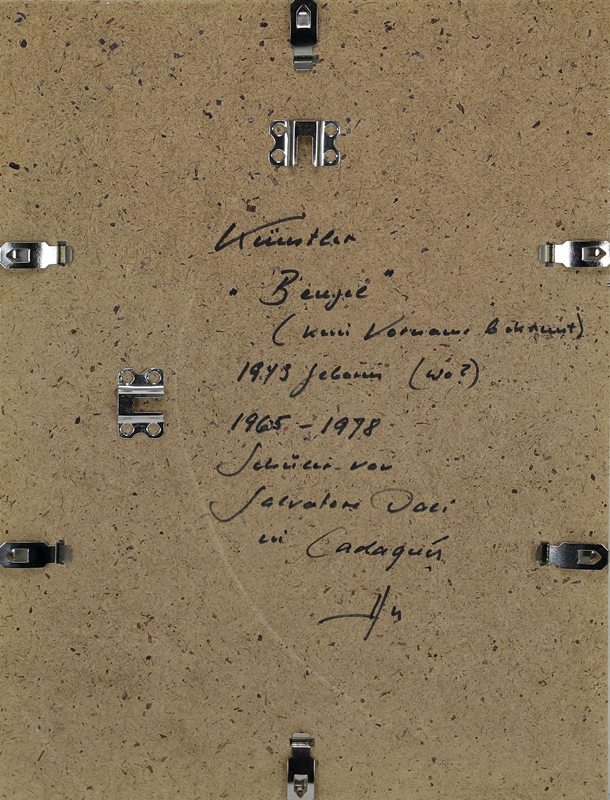 Künstler
"Bengel"
(kein Vorname bekannt)
1943 geboren (wo?)
1965 - 1978
Schüler von
Salvatore Dali
in Cadaqués